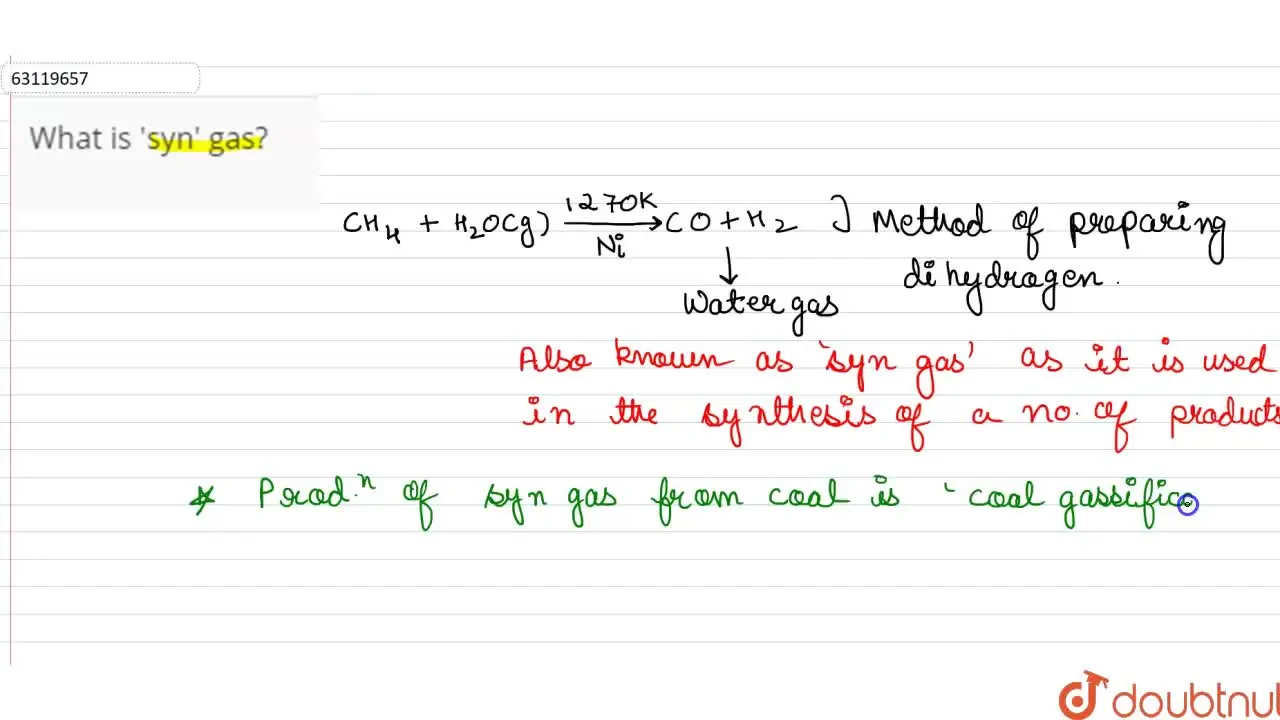 63119657
What is 'syn' gas?
CH4 + H2O(g) 1270K Ni → CO + H2 ] Method of preparing
dihydrogen.
↓
Water gas
Also known as 'syn gas' as it is used
in the synthesis of a no. of products
* Prod.n of syn gas from coal is 'coal gassifica
doubtnut